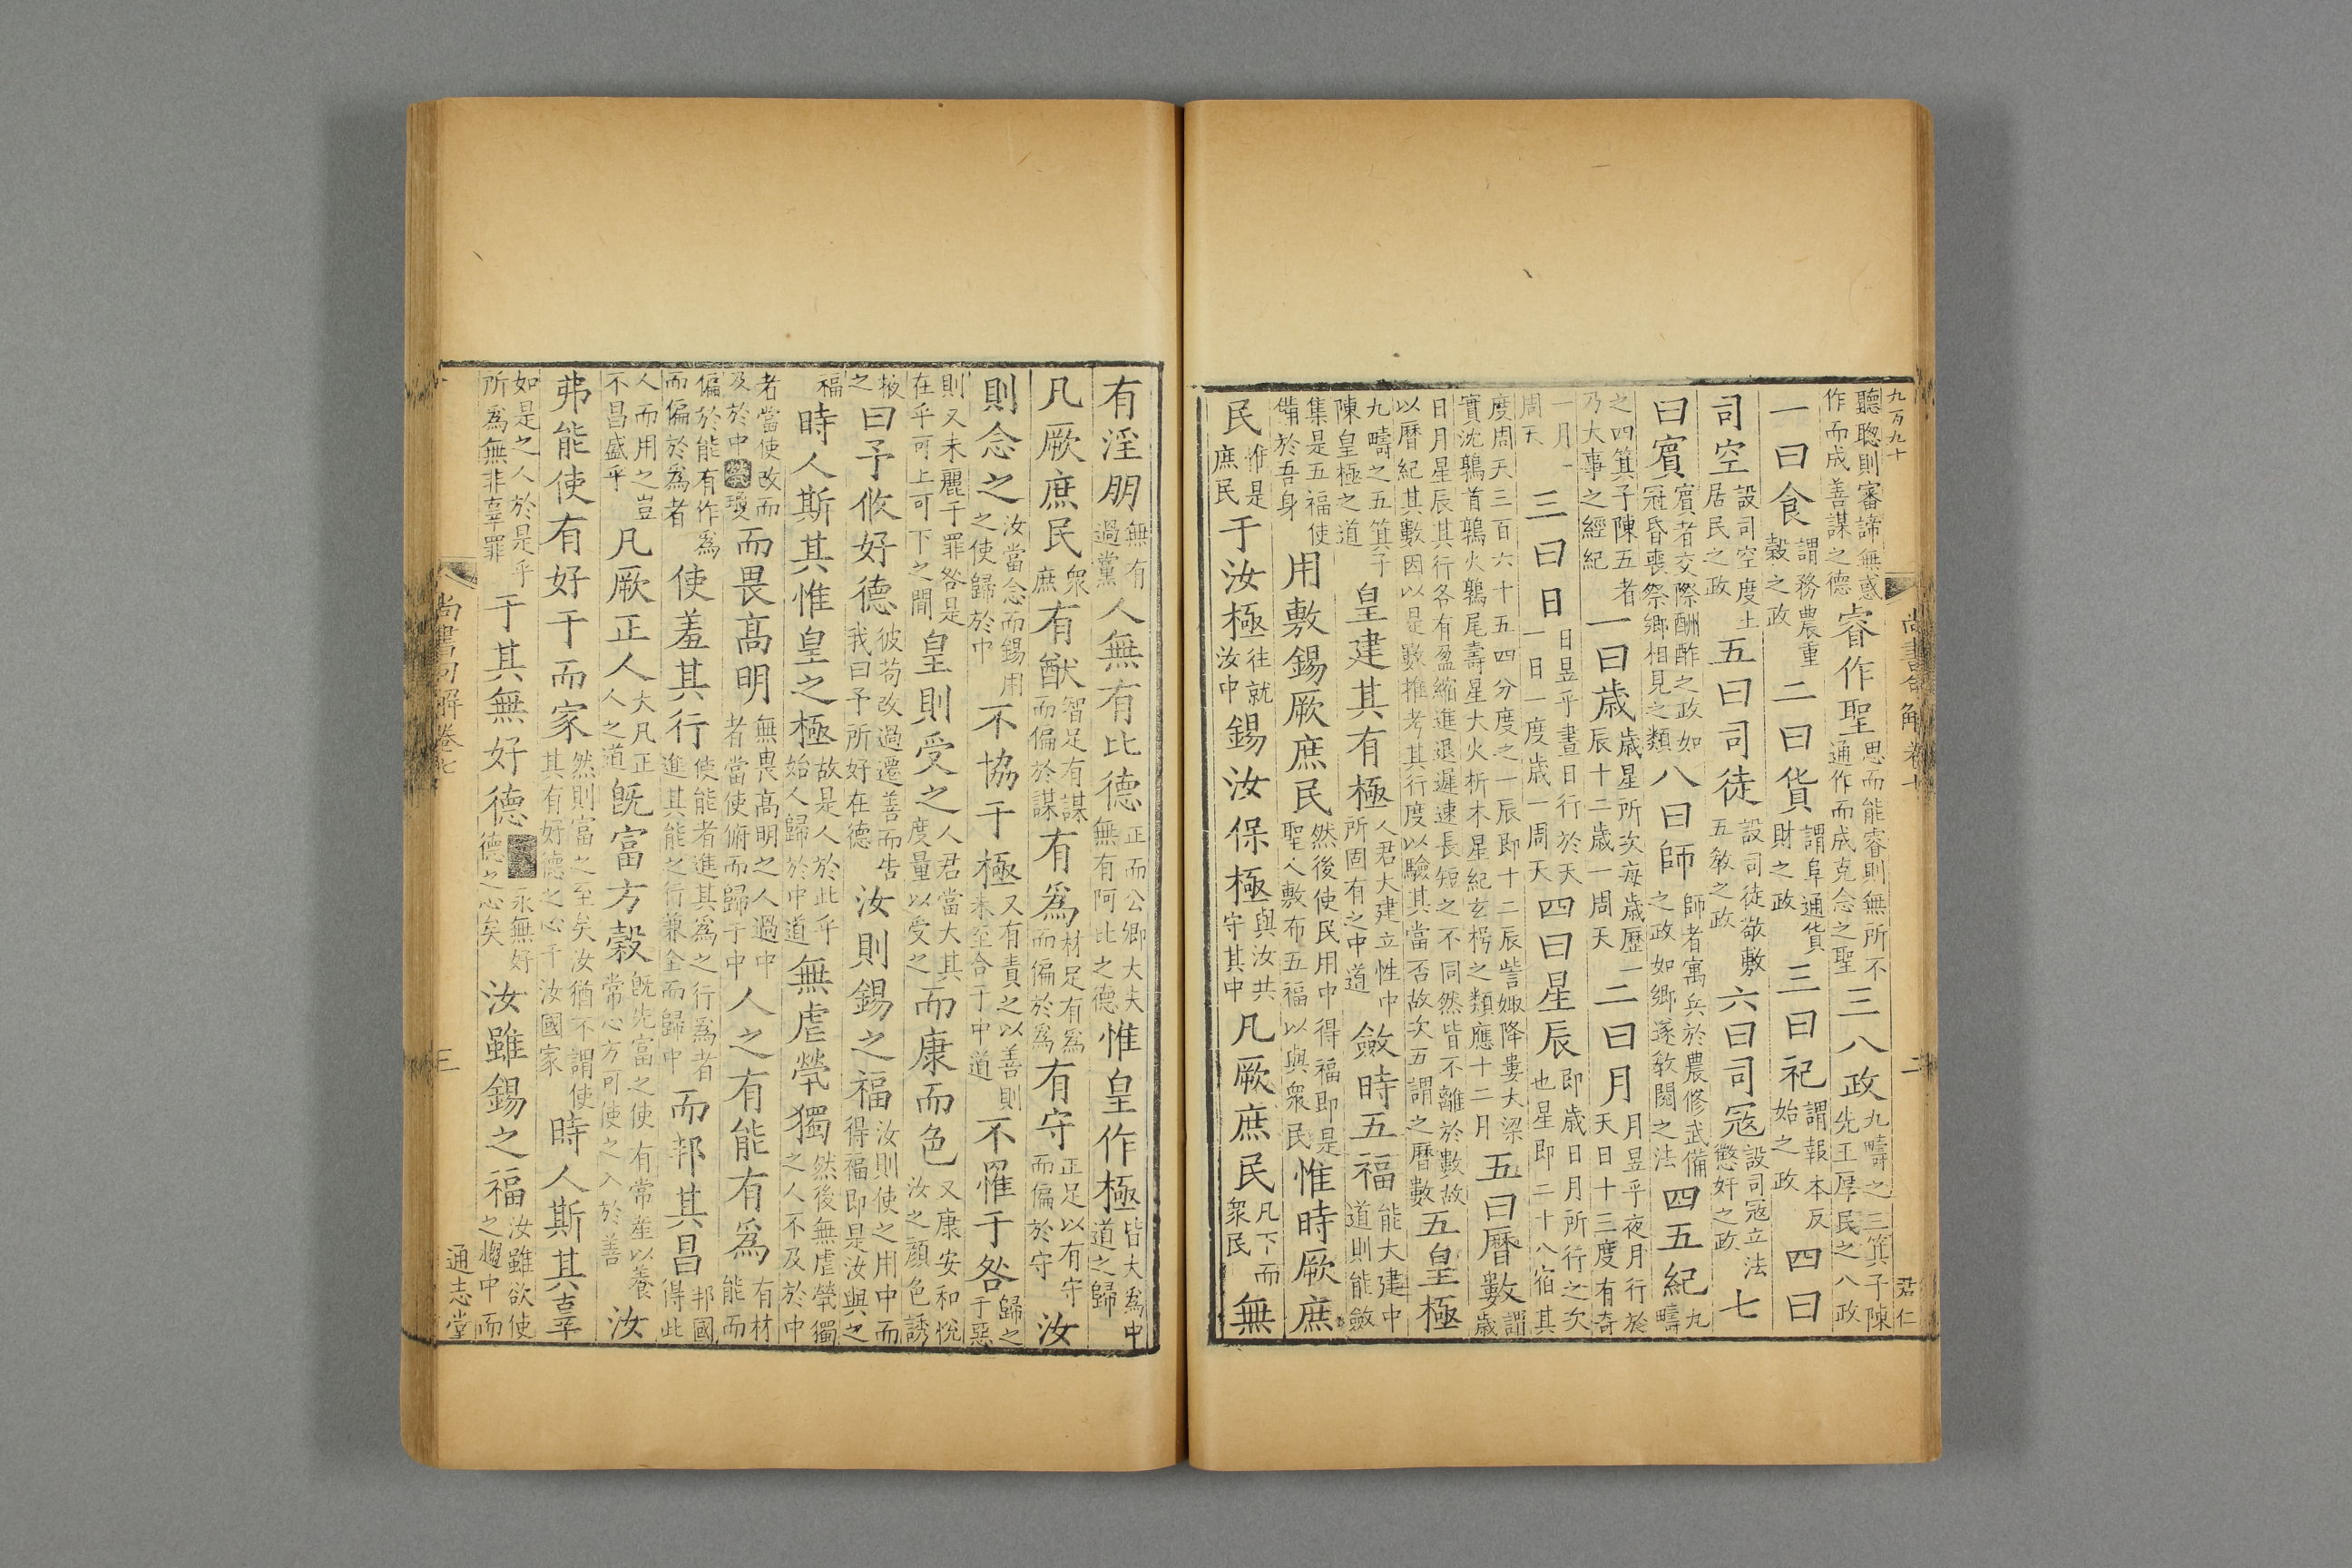 九百九十 尚書句解卷七 二 君仁
聽聰則審諦無惑作而成善謀之德睿作聖思而能睿則無所不通作而成克念之聖三八政九疇之三箕子陳先王厚民之八政
一曰食謂務農重穀之政二曰貨謂阜通貨財之政三曰祀謂報本反始之政四曰
司空設司空度土居民之政五曰司徒設司徒敬敷五敎之政六曰司寇設司寇立法懲奸之政七
曰賔賔者交際酬酢之政如冠昏喪祭鄉相見之類八曰師師者寓兵於農修武備之政如鄉遂敎閱之法四五紀九疇
之四箕子陳五者乃大事之經紀一曰歳歳星所次每歳歷一辰十二歳一周天二曰月月昱乎夜月行於天日十三度有奇
一月一周天三曰日日昱乎晝日行於天一日一度歳一周天四曰星辰即歳日月所行之次也星即二十八宿其
度周天三百六十五四分度之一辰即十二辰訾娵降婁大梁實沈鶉首鶉火鶉尾壽星大火析木星紀玄枵之類應十二月五曰曆數謂歳
日月星辰其行各有盈縮進退遲速長短之不同然皆不離於數故以曆紀其數因以是數推考其行度以驗其當否故次五謂之曆數五皇極
九疇之五箕子陳皇極之道皇建其有極人君大建立性中所固有之中道斂時五福能大建中道則能斂
集是五福使備於吾身用敷錫厥庶民然後使民用中得福即是聖人敷布五福以與衆民惟時厥庶
民惟是庶民于汝極往就汝中錫汝保極與汝共守其中凡厥庶民凡下而衆民無
有淫朋無有過黨人無有比德正而公卿大夫無有阿比之德惟皇作極皆大爲中道之歸
凡厥庶民衆庶有猷智足有謀而偏於謀有爲材足有爲而偏於爲有守正足以有守而偏於守汝
則念之汝當念而錫用之使歸於中不協于極又有責之以善則未至合于中道不罹于咎歸之于惡
則又未麗于罪咎是在乎可上可下之間皇則受之人君當大其度量以受之而康而色又康安和悅汝之顔色誘
掖之曰予攸好德彼苟改過遷善而告我曰予所好在德汝則錫之福汝則使之用中而得福即是汝與之
福時人斯其惟皇之極故是人於此乎始人歸於中道無虐煢獨然後無虐煢獨之人不及於中
者當使改而及於中煢獨而畏高明無畏高明之人過中者當使俯而歸于中人之有能有爲有材能而
偏於能有作爲而偏於爲者使羞其行使能者進其爲之行爲者進其能之行兼全而歸中而邦其昌邦國得此
人而用之豈不昌盛乎凡厥正人大凡正人之道旣富方穀旣先富之使有常產以養常心方可使之入於善汝
弗能使有好于而家然則富之至矣汝猶不謂使其有好德之心于汝國家時人斯其辜
如是之人於是乎所爲無非辜罪于其無好德永無好德之心矣汝雖錫之福汝雖欲使之趨中而
尚書句解卷七 三 通志堂